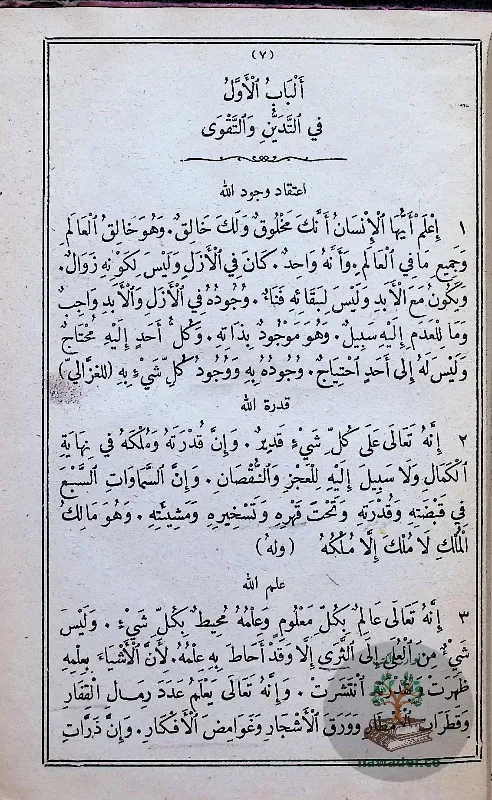 (٧)
أَلْبَابُ ٱلْأَوَّلُ
فِي ٱلتَّدَيُّنِ وَٱلتَّقْوَى
اعتقاد وجود الله
١ إِعْلَمْ أَيُّهَا ٱلْإِنْسَانُ أَنَّكَ مَخْلُوقٌ وَلَكَ خَالِقٌ. وَهُوَ خَالِقُ ٱلْعَالَمِ
وَجَمِيعِ مَا فِي ٱلْعَالَمِ. وَأَنَّهُ وَاحِدٌ. كَانَ فِي ٱلْأَزَلِ وَلَيْسَ لِكَوْنِهِ زَوَالٌ.
وَيَكُونُ مَعَ ٱلْأَبَدِ وَلَيْسَ لِبَقَائِهِ فَنَاءٌ. وُجُودُهُ فِي ٱلْأَزَلِ وَٱلْأَبَدِ وَاجِبٌ
وَمَا لِلْعَدَمِ إِلَيْهِ سَبِيلٌ. وَهُوَ مَوْجُودٌ بِذَاتِهِ. وَكُلُّ أَحَدٍ إِلَيْهِ مُحْتَاجٌ
وَلَيْسَ لَهُ إِلَى أَحَدٍ ٱحْتِيَاجٌ. وُجُودُهُ بِهِ وَوُجُودُ كُلِّ شَيْءٍ بِهِ (للغزّالي)
قدرة الله
٢ إِنَّهُ تَعَالَى عَلَى كُلِّ شَيْءٍ قَدِيرٌ. وَإِنَّ قُدْرَتَهُ وَمُلْكَهُ فِي نِهَايَةِ
ٱلْكَمَالِ وَلَا سَبِيلَ إِلَيْهِ لِلْعَجْزِ وَٱلنُّقْصَانِ. وَإِنَّ ٱلسَّمَاوَاتِ ٱلسَّبْعَ
فِي قَبْضَتِهِ وَقُدْرَتِهِ وَتَحْتَ قَهْرِهِ وَتَسْخِيرِهِ وَمَشِيئَتِهِ. وَهُوَ مَالِكُ
ٱلْمُلْكِ لَا مُلْكَ إِلَّا مُلْكُهُ (وله)
علم الله
٣ إِنَّهُ تَعَالَى عَالِمٌ بِكُلِّ مَعْلُومٍ وَعِلْمُهُ مُحِيطٌ بِكُلِّ شَيْءٍ. وَلَيْسَ
شَيْءٌ مِنَ ٱلْعُلَى إِلَى ٱلثَّرَى إِلَّا وَقَدْ أَحَاطَ بِهِ عِلْمُهُ. لِأَنَّ ٱلْأَشْيَاءَ بِعِلْمِهِ
ظَهَرَتْ وَبِقُدْرَتِهِ ٱنْتَشَرَتْ. وَإِنَّهُ تَعَالَى يَعْلَمُ عَدَدَ رِمَالِ ٱلْقِفَارِ
وَقَطَرَاتِ ٱلْأَمْطَارِ وَوَرَقِ ٱلْأَشْجَارِ وَغَوَامِضَ ٱلْأَفْكَارِ. وَإِنَّ ذَرَّاتِ
nawader.co